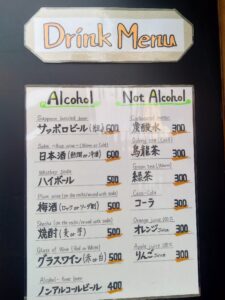 Drink Menu
Alcohol
Sapporo bottled beer
サッポロビール(瓶) 600
Sake -Rice wine- (Warm or Cold)
日本酒(熱燗 or 冷酒) 600
Whiskey soda
ハイボール 500
Plum wine (on the rocks/mixed with soda)
梅酒(ロック or ソーダ割) 500
Shochu (on the rocks/mixed with soda)
焼酎(麦 or 芋) 500
Glass of Wine (Red or White)
グラスワイン(赤 or 白) 500
Alcohol-free beer
ノンアルコールビール 400
Not Alcohol
Carbonated water
炭酸水 300
Oolong tea (Cold)
烏龍茶 300
Green tea
緑茶 300
Coca-Cola
コーラ 300
Orange juice 100%
オレンジジュース 300
Apple juice 100%
りんごジュース 300